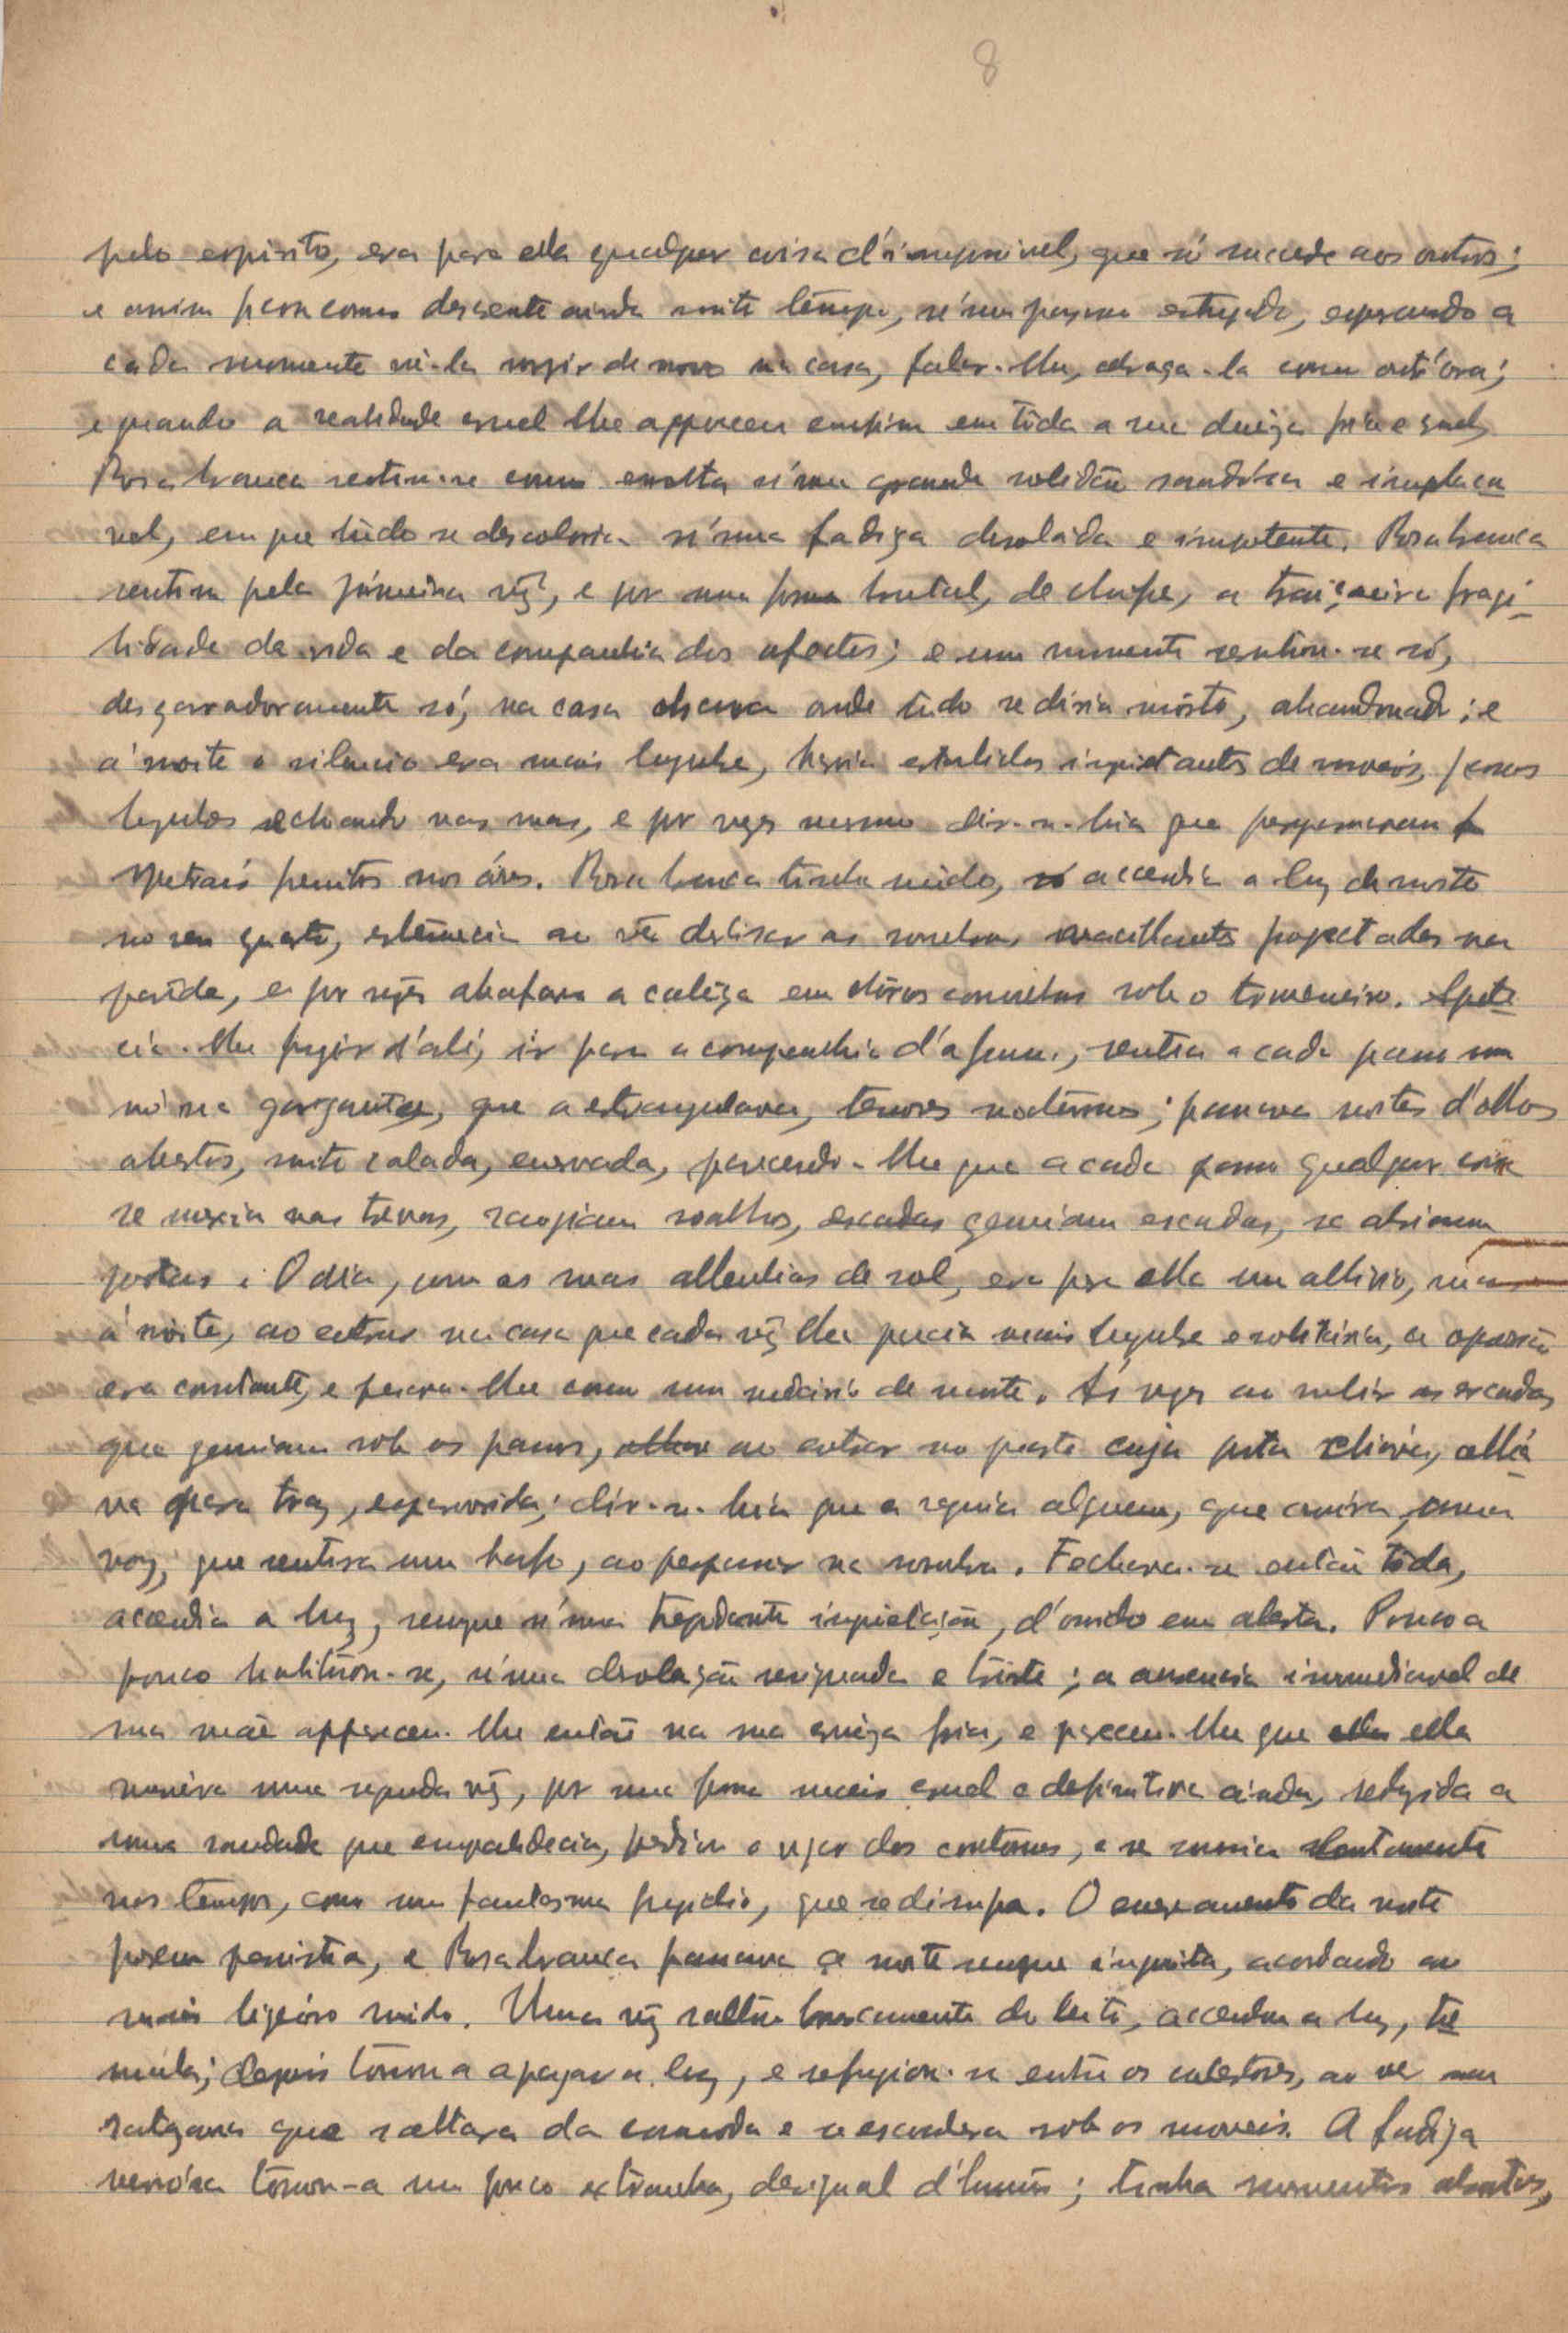 8
pelo espirito, era para ella qualquer coisa d'impossivel, que só succede aos outros;
e assim ficou como descrente ainda muito tempo, n'um pasmo estupido, esperando a
cada momento vê-la surgir de novo na casa, falar-lhe, abraça-la como outr'ora;
e quando a realidade cruel lhe appareceu emfim em tôda a sua dureza fria e
Rosabranca sentiu-se como envolta n'uma grande solidão e implaca
vel, em que tudo se descoloria n'uma fadiga desolada e impotente. Rosabranca
sentira pela primeira vêz, e por uma forma brutal, de chofre, a traiçoeira fragi-
lidade da vida e da companhia dos afectos; e num momento sentiu-se só,
desgarradoramente só, na casa escura onde tudo se diria môrto, abandonado; e
á noite o silencio era mais lugubre, havia estalidos inquietantes de moveis, passos
lugubres echoando nas ruas, e por vezes mesmo dir-se-hia que perpassavam
nos áres. Rosabranca tinha mêdo, accendia a luz de noite
no seu quarto, estremecia ao vêr deslisar as sombras vacillantes projectadas na
parêde, e por vezes abafava a cabeça em chôros convulsos sob o travesseiro. Apete
cia-lhe fugir d'ali, ir para a companhia d'alguem, sentia a cada passo um
nó na garganta, que a estrangulava, terrores nocturnos; passava noites d'olhos
abertos, muito calada, enervada, parecendo-lhe que a cada passo qualquer coisa
se mexia nas trevas, rangiam soalhos, escadas gemiam escadas, se abriam
portas. O dia, com as ruas alheias de sol, era para ella um allivio, mas
á noite, ao entrar na casa que cada vêz lhe parecia mais lugubre e solitária, a opressão
era constante, e pesava-lhe como um de morte. Ás vezes ao subir as escadas
que gemiam sob os passos, olhav ao entrar no quarto cuja porta chiára, olhá
va para traz, espavorida; dir-se-hia que a seguia alguem, que ouvira uma
voz, que sentira um bafo, ao perpassar na sombra. Fechava-se então tôda,
accendia a luz, sempre n'uma trepidante inquietação, d'ouvido em alerta. Pouco a
pouco habituou-se, n'uma desolação resignada e triste; a ausencia irremediavel de
sua mãe appareceu-lhe então na sua crueza fria, e pareceu-lhe que ella ella
morrera uma segunda vêz, por uma forma mais cruel e definitiva ainda, reduzida a
uma saudade que empalidecia, perdia o vigor dos contornos, e se sumia lentamente
nos tempos, como um fantasma fugidio, que se dissipa. O enervamento da noite
porem persistia, e Rosabranca passava a noite sempre inquieta, acordando ao
mais ligeiro ruido. Uma vêz saltou bruscamente do leito, accendeu a luz, tre
mula; depois tornou a apagar a luz, e refugiou-se entre os cobertores, ao ver uma
ratazana que saltara da commoda e se escondera sob os moveis. A fadiga
nervosa tornou-a um pouco extranha, desigual d'humor; tinha momentos absortos,